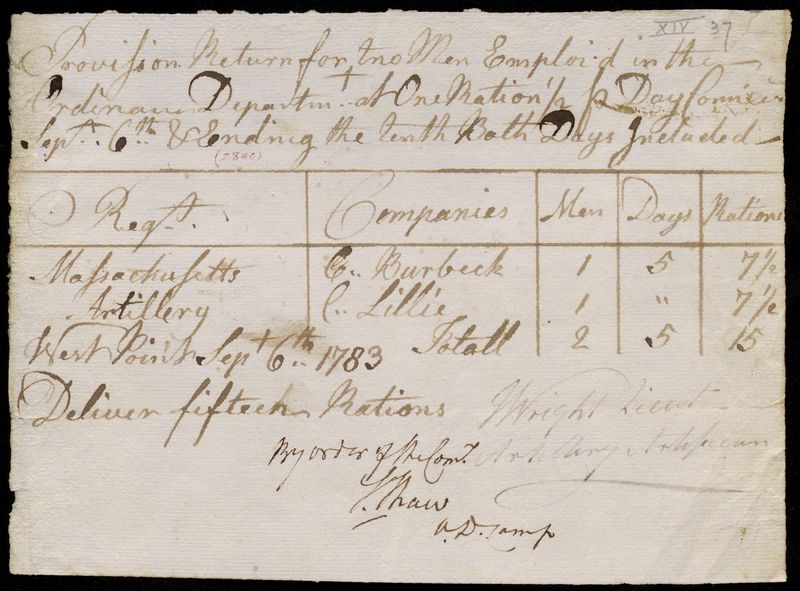 XIV 37
Provision Return for two Men Emploi'd in the
Ordinance Departmt. at One Ration ½ p Day Comice
Sept. 6th & Ending the tenth Both Days Included
(2840)
Regt. Companies Men Days Rations
Massachusetts C.. Burbeck 1 5 7½
Artillery C.. Lillie 1 " 7½
Totall 2 5 15
West Point Sept 6th 1783
Deliver fifteen Rations
J Wright Lieut
Artillery Artificers
By order of the Comt.
S. Shaw
A. D. Camp